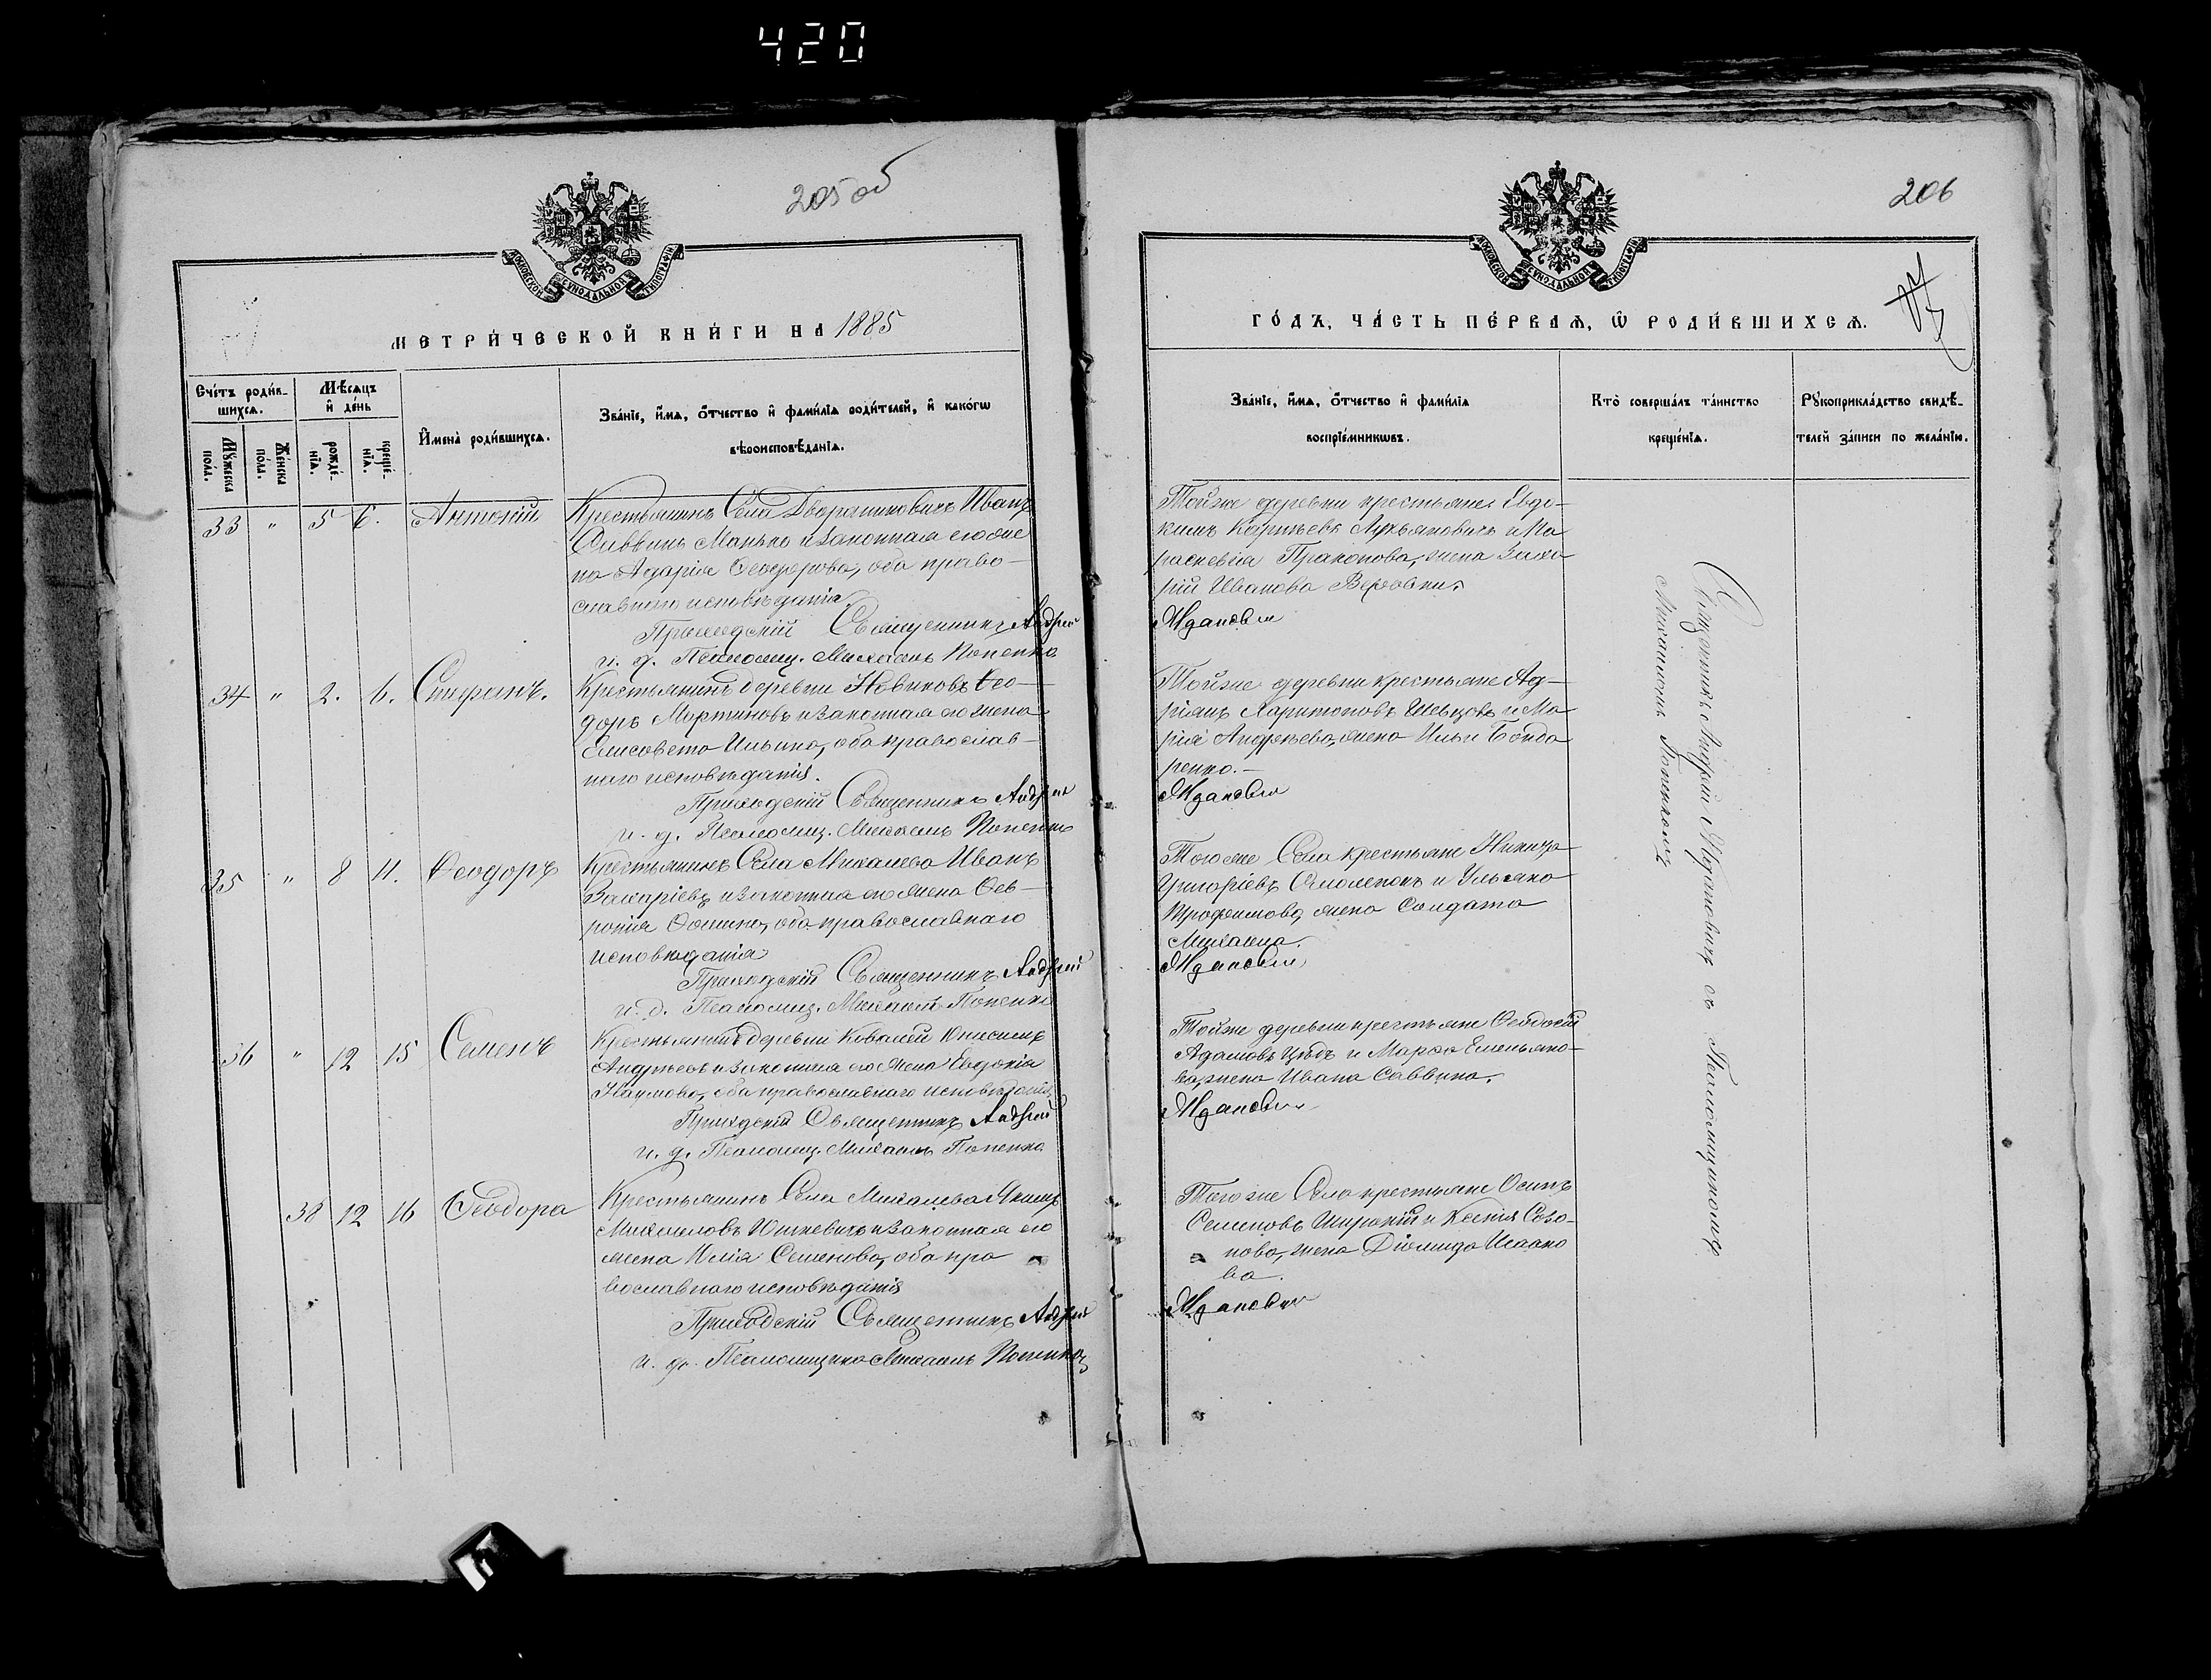 420
205 об
МОСКОВСКОЙ СѴНОДАЛЬНОЙ ТИПОГРАФІИ
МЕТРИ́ЧЕСКОЙ КНИ́ГИ НА 1885
Сче́тъ роди́в-
шихсѧ.
Мѣ́сѧцъ
и҆ де́нь
Мꙋ́жеска по́ла.
Же́нска по́ла.
рожде́-нїѧ.
креще́-нїѧ.
И҆мена̀ роди́вшихсѧ.
Зва́нїе, и҆́мѧ, ѻ҆́тчество и҆ фами́лїѧ роди́телей, и҆ како́гѡ
вѣроисповѣ́данїѧ.
33 " 5 6. Антоній
Крестьянинъ Села Иванъ
Саввинъ Манько и законная его же
на Дарія Ѳеодорова, оба право-
славнаго исповѣданія
Приходскій Священникъ Андрей
и. д. Псаломщ. Михаилъ Попенко
34 " 2. 6. Стефанъ.
Крестьянинъ деревни Новиковъ Ѳео-
доръ Мартиновъ и законная его жена
Елисавета Ильина, оба православ-
наго исповѣданія.
Приходскій Священникъ Андрей
и. д. Псаломщ. Михаилъ Попенко
35 " 8 11. Ѳеодоръ
Крестьянинъ Села Михалева Иванъ
Захаріевъ и законная его жена Фев-
ронія Фомина, оба православнаго
исповѣданія
Приходскій Священникъ Андрей
и. д. Псаломщ. Михаилъ Попенко
36 " 12 15 Семенъ
Крестьянинъ деревни Ковалей Онисимъ
Андреевъ и законная его жена Евдокія
Наумова, оба православнаго исповѣданія
Приходскій Священникъ Андрей
и. д. Псаломщ. Михаилъ Попенко
38 12 16 Ѳеодора
Крестьянинъ Села Михалева Якимъ
Михаиловъ Юшкевичъ и законная его
жена Семенова, оба пра
вославнаго исповѣданія
Приходскій Священникъ Андрей
и. д. Псаломщика Михаилъ Попенко
206
МОСКОВСКОЙ СѴНОДАЛЬНОЙ ТИПОГРАФІИ
ГО́ДЪ, ЧА́СТЬ ПЕ́РВАѦ, Ѡ҆ РОДИ́ВШИХСѦ.
Зва́нїе, и҆́мѧ, ѻ҆́тчество и҆ фами́лїѧ
воспрїе́мникѡвъ.
Кто̀ соверша́лъ та́инство
креще́нїѧ.
Рꙋкоприкла́дство свидѣ́-
телей за́писи по жела́нїю.
Тойже деревни крестьяне Евдо-
кимъ Лукьяновичъ и Па
раскевія Пракопова, жена Заха-
рій Иванова
Жданович
Тойже деревни крестьяне Ад-
ріянъ Харитоновъ Шевцовъ и Ма
рія Андреева, жена Ильи Бонда
ренко.-
Жданович
Тогоже Села крестьяне Никита
Григоріевъ и Ульяна
Трофимова, жена Солдата
Михаила.
Жданович
Тойже деревни крестьяне Ѳеодосій
Адамовъ и Марѳа Емельяно-
ва, жена Ивана Саввина.
Жданович
Тогоже Села крестьяне Осипъ
Семеновъ Широкій и Ксенія Созо-
нова, жена Діомида Исаако
ва.
Жданович
Священникъ Андрей Ждановичъ съ Псаломщикомъ
Михаиломъ Попенкомъ